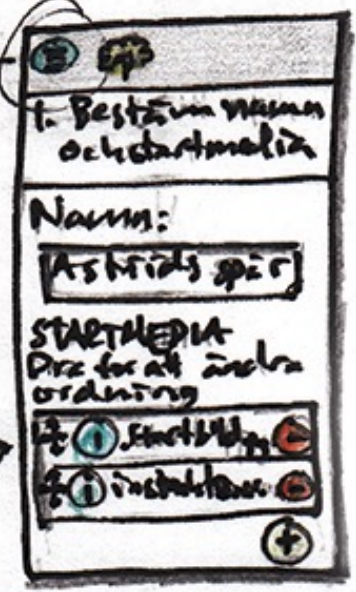 1. Bestäm namn
och startmedia
Namn:
Astrids spår
STARTMEDIA
Dra för att ändra
ordning
i startbild
i
+